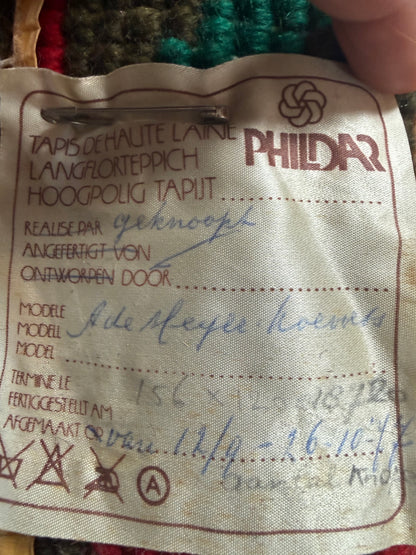 TAPIS DE HAUTE LAINE
PHILDAR
LANGFLORTEPPICH
HOOGPOLIG TAPIJT
REALISE PAR geknoopt
ANGEFERTIGT VON
ONTWORPEN DOOR
MODELE
MODELL A de Meyer
MODEL
TERMINE LE 156 x 120
FERTIGGESTELLT AM
AFGEMAAKT OP van 12/9 - 26-10-77
A